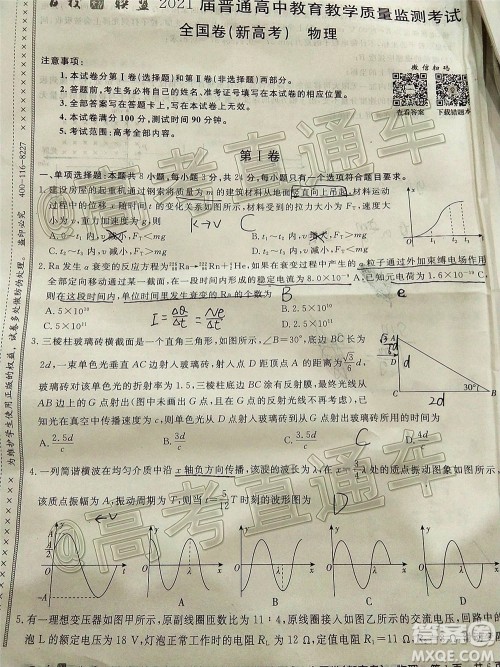 百校 联盟 2021届普通高中教育教学质量监测考试
全国卷(新高考) 物理
注意事项:
微信扫码
1.本试卷分第Ⅰ卷(选择题)和第Ⅱ卷(非选择题)两部分。
2.答题前,考生务必将自己的姓名、准考证号填写在本试卷的相应位置。
3.全部答案写在答题卡上,写在本试卷上无效。
4.本试卷满分100分,测试时间90分钟。
5.考试范围:高考全部内容。
查看答案 下载错题本
第Ⅰ卷
一、单项选择题:本题共8小题,每小题3分,共24分,每小题只有一个选项符合题目要求。
1.建设房屋的起重机通过钢索将质量为m的建筑材料从地面竖直向上吊起,材料运动
过程中的位移x随时间t的变化关系如图所示,材料受到的拉力大小为F_T,速度大
小为v,重力加速度为g,则
k→v C
A.0~t₁内,v减小,F_T<mg
B.t₁~t₂内,v减小,F_T>mg
C.t₁~t₂内,v减小,F_T<mg
x
O t₁ t₂ t
2.Ra发生α衰变的反应方程为
Ra→
Rn+⁴₂He,如果在衰变过程中产生的α粒子通过外加束缚电场作用
全部定向移动通过某一截面,在一段时间内形成的稳定电流为8.0×10⁻⁸ A,已知元电荷为1.6×10⁻¹⁹ C,
则在这段时间内,单位时间里发生衰变的Ra的个数为
B
e
A.5×10¹⁰
B.2.5×10¹¹
C.5×10¹¹
I = ΔQ/Δt = Ne/Δt
3.三棱柱玻璃砖的横截面是一个直角三角形,如图所示,∠B=30°,底边BC长为
2d,一束单色光垂直AC边射入玻璃砖,射入点D距顶点A的距离为√3/6 d,
玻璃砖对该单色光的折射率为1.5,三棱柱底边BC涂有反射膜,最终光线从
AB边上的G点射出(图中未画出G点,且不在G点的反射光线也未画出),已
知光在真空中传播速度为c,则单色光从D点射入玻璃砖到从G点射出所用的时间为
A.2.5d/c
B.3d/c
C.
C
D.4d/c
A
D
d
C 2d 30° B
4.一列简谐横波在均匀介质中沿x轴负方向传播,该波的波长为λ,在x=3/4λ处的质点振动图象如图所示,
该质点振幅为A,振动周期为T,则当t=5/12 T时刻的波形图为
D
←v
y
A
A/2
O
-A
t
y
O
λ
x
A
y
O
λ
x
B
y
O
λ
x
C
y
O
λ
x
D
5.有一理想变压器如图甲所示,原副线圈匝数比为11∶4,原线圈接入如图乙所示的交流电压,回路中的
泡L的额定电压为18 V,灯泡正常工作时的电阻R_L为12 Ω,定值电阻R₁
为维护学生使用正版的权益,试卷多处做防伪处理。
盗印必究
400-116-8227
@高考直通车
@高考直通车
答案圈
MXQE.COM